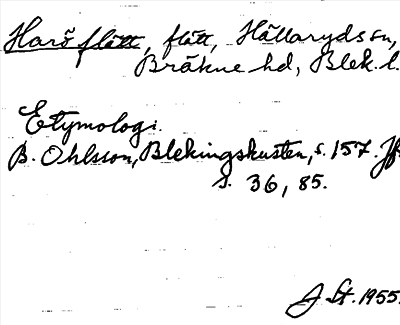 Harö flått, flått, Hällaryds sn,
Bräkne hd, Blek. l.
Etymologi.
B. Ohlsson, Blekingskusten, s. 157. Jfr
s. 36, 85.
J St. 1955.